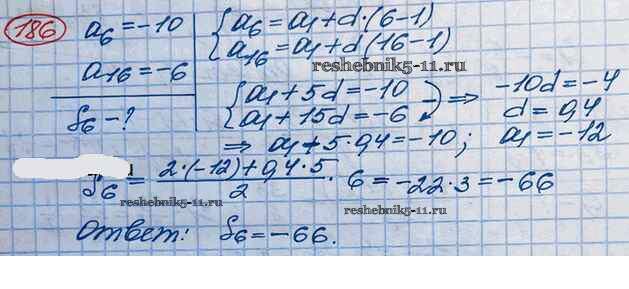 186 a₆ = -10 { a₆ = a₁ + d·(6-1)
a₁₆ = -6 a₁₆ = a₁ + d(16-1)
reshebnik5-11.ru
S₆ - ? { a₁ + 5d = -10 ⇒ -10d = -4
a₁ + 15d = -6 d = 0,4
⇒ a₁ + 5·0,4 = -10; a₁ = -12
S₆ = 2·(-12) + 0,4·5 / 2 · 6 = -22·3 = -66
reshebnik5-11.ru reshebnik5-11.ru
Ответ: S₆ = -66.